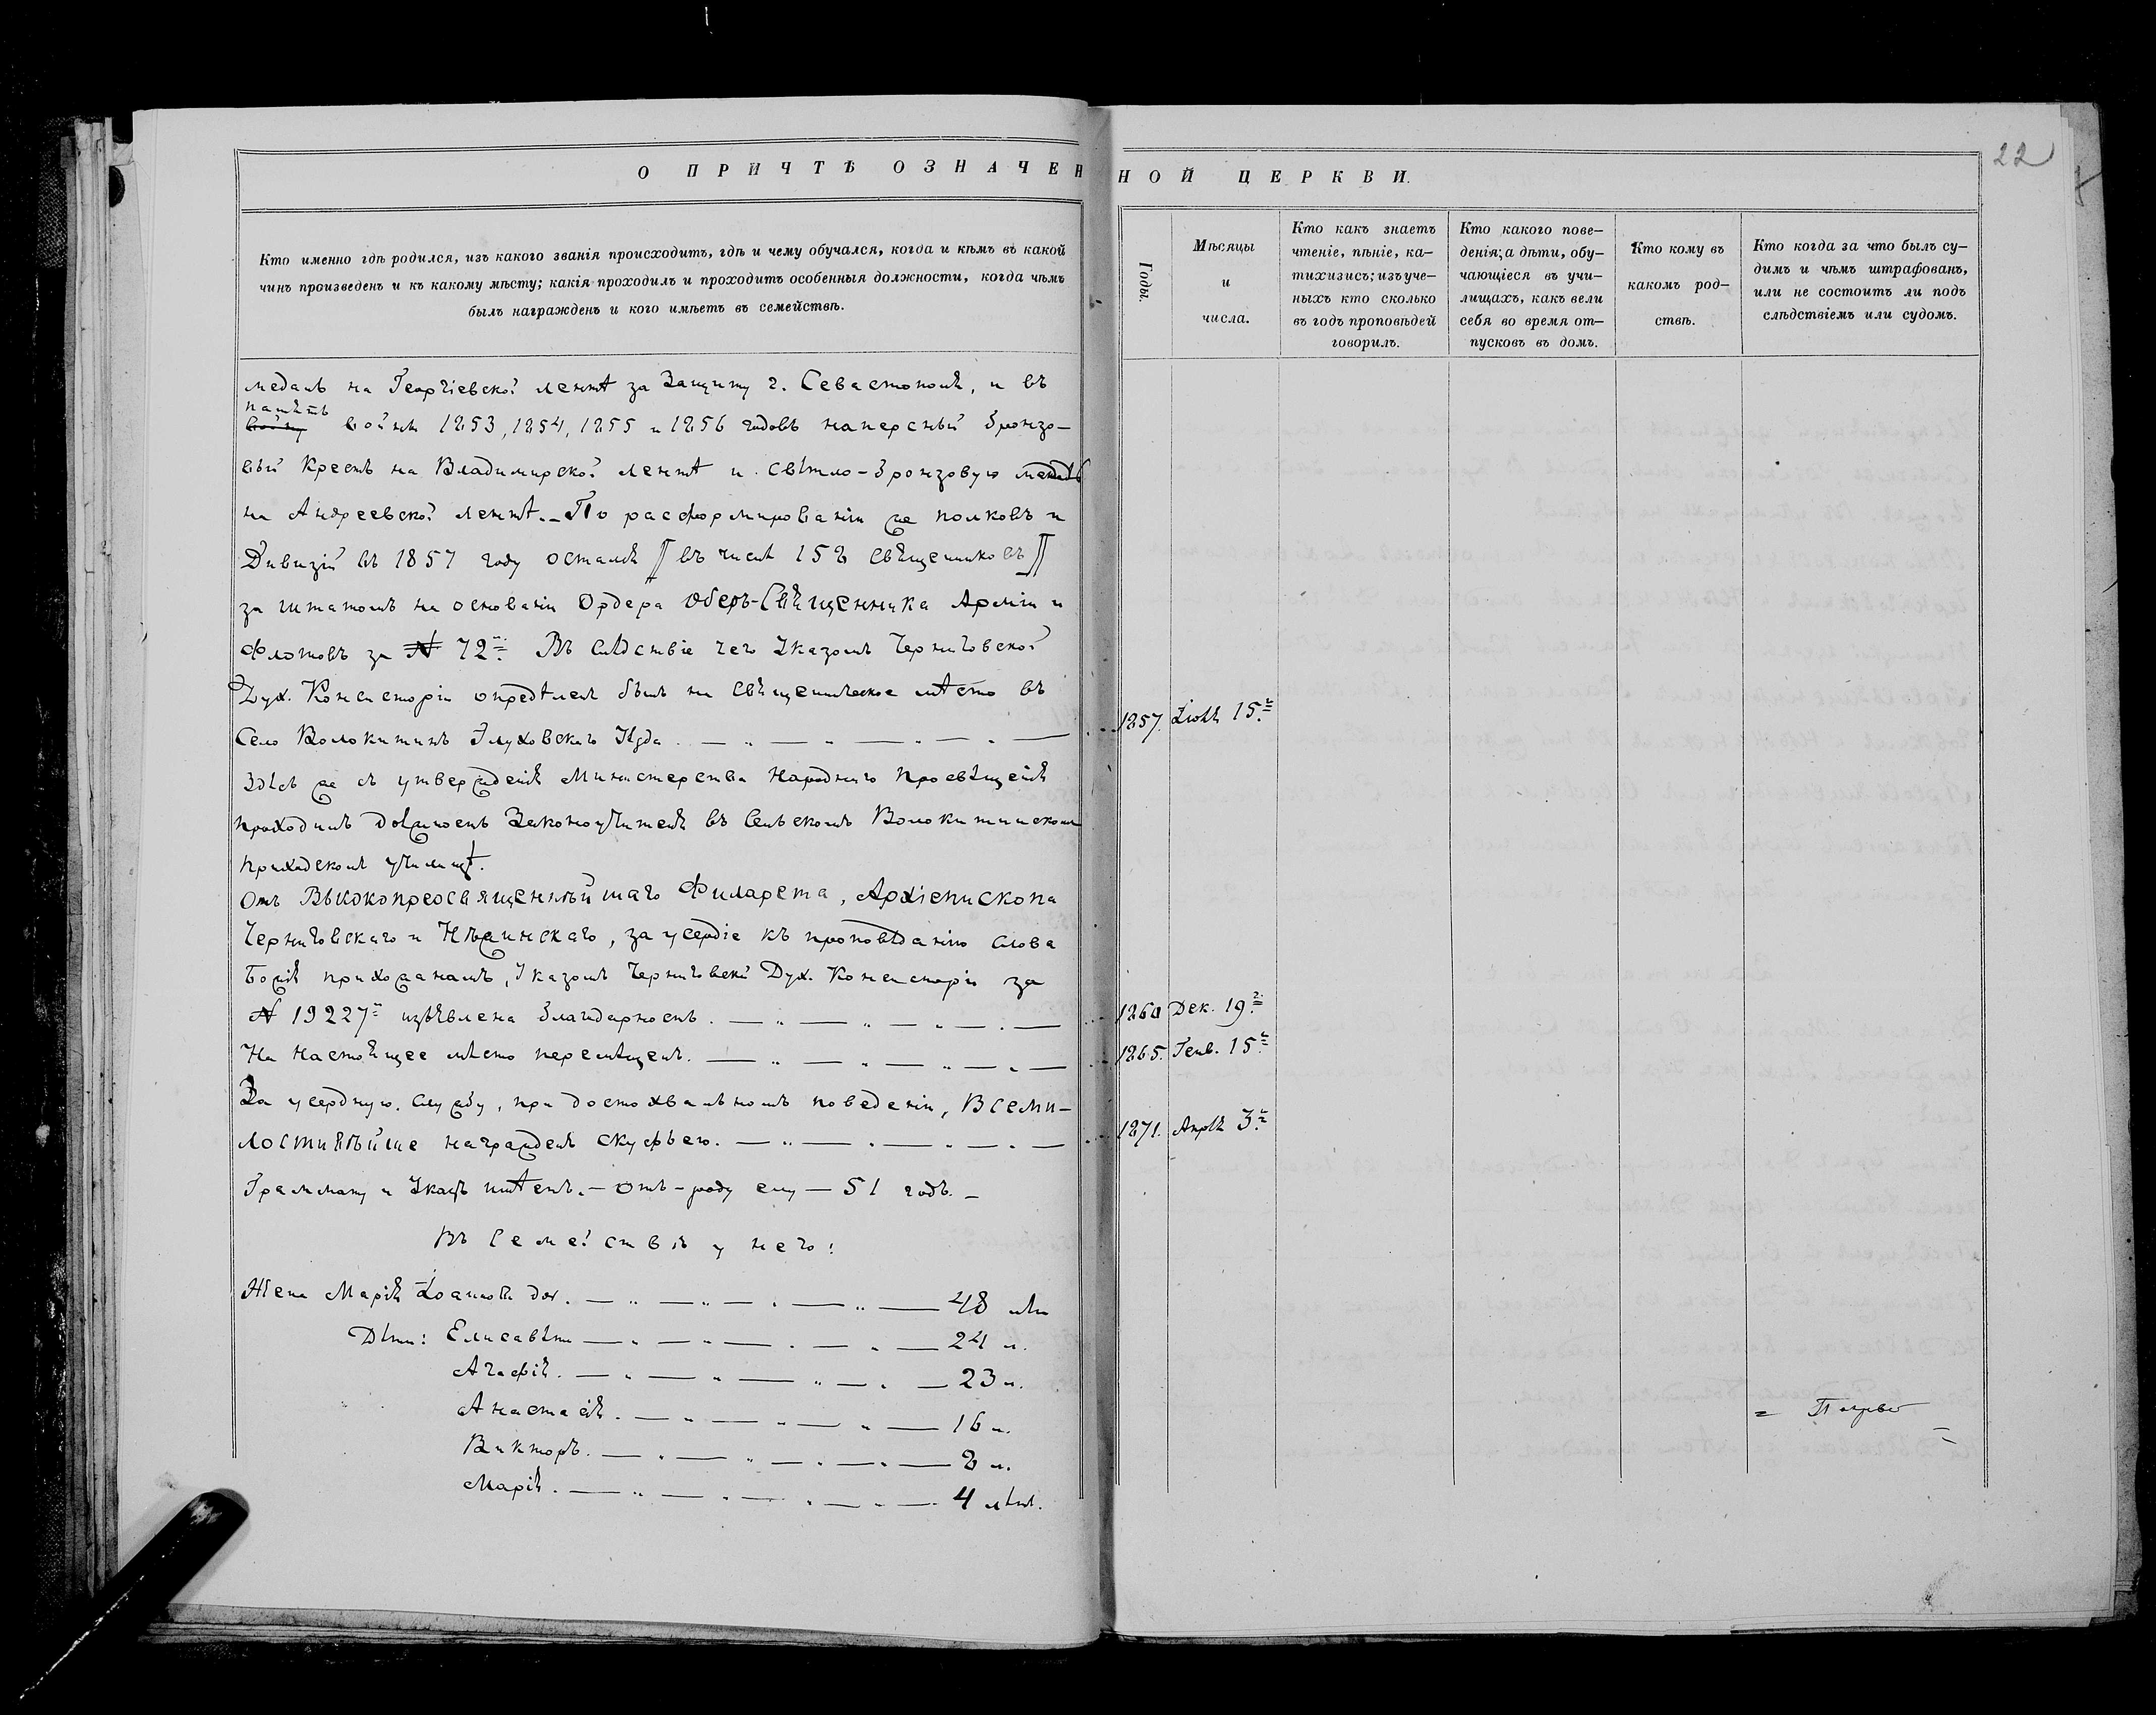 22
О ПРИЧТѢ ОЗНАЧЕННОЙ ЦЕРКВИ.
Кто именно гдѣ родился, изъ какого званія происходитъ, гдѣ и чему обучался, когда и кѣмъ въ какой
чинъ произведенъ и къ какому мѣсту; какія проходилъ и проходитъ особенныя должности, когда чѣмъ
былъ награжденъ и кого имѣетъ въ семействѣ.
Годы.
Мѣсяцы
и
числа.
Кто какъ знаетъ
чтеніе, пѣніе, ка-
тихизисъ; изъ уче-
ныхъ кто сколько
въ годъ проповѣдей
говорилъ.
Кто какого пове-
денія; а дѣти, обу-
чающіеся въ учи-
лищахъ, какъ вели
себя во время от-
пусковъ въ домъ.
Кто кому въ
какомъ род-
ствѣ.
Кто когда за что былъ су-
димъ и чѣмъ штрафованъ,
или не состоитъ ли подъ
слѣдствіемъ или судомъ.
медаль на Георгіевской лентѣ за Защиту г. Севастополя, и въ
память
войны 1853, 1854, 1855 и 1856 годовъ наперсный бронзо-
вый Крестъ на Владимирской лентѣ и свѣтло-бронзовую медаль
на Андреевской лентѣ. – По расформированіи же полковъ и
Дивизій въ 1857 году остался // въ числѣ 158 священниковъ //
за штатомъ на основаніи Ордера Оберъ-Священника Арміи и
Флотовъ за № 72. Въ слѣдствіе чего Указомъ Черниговской
Дух. Консисторіи опредѣленъ былъ на священническое мѣсто въ
Село Волокитинъ Глуховскаго Уѣзда. 1857. Іюля 15.
Здѣсь же съ утвержденія Министерства Народнаго Просвѣщенія
проходилъ должность Законоучителя въ Сельскомъ Волокитинскомъ
приходскомъ училищѣ.
Отъ Высокопреосвященнѣйшаго Филарета, Архіепископа
Черниговскаго и Нѣжинскаго, за усердіе къ проповѣданію слова
Божія прихожанамъ, Указомъ Черниговской Дух. Консисторіи за
№ 19227 изъявлена благодарность. 1860 Дек. 19.
На настоящее мѣсто перемѣщенъ. 1865. Генв. 15.
За усердную службу, при достохвальномъ поведеніи, Всеми-
лостивѣйше награжденъ скуфьею. 1871. Апрѣля 3.
Грамату и Указъ имѣетъ. – Отъ-роду ему – 51 годъ. –
Въ Семействѣ у него:
Жена Марія Іоаннова дочь. 48 лѣтъ
Дѣти: Елисавета 24 л.
Агафія. 23 л.
Анастасія. 16 л.
Викторъ. 8 л.
Марія. 4 лѣтъ.